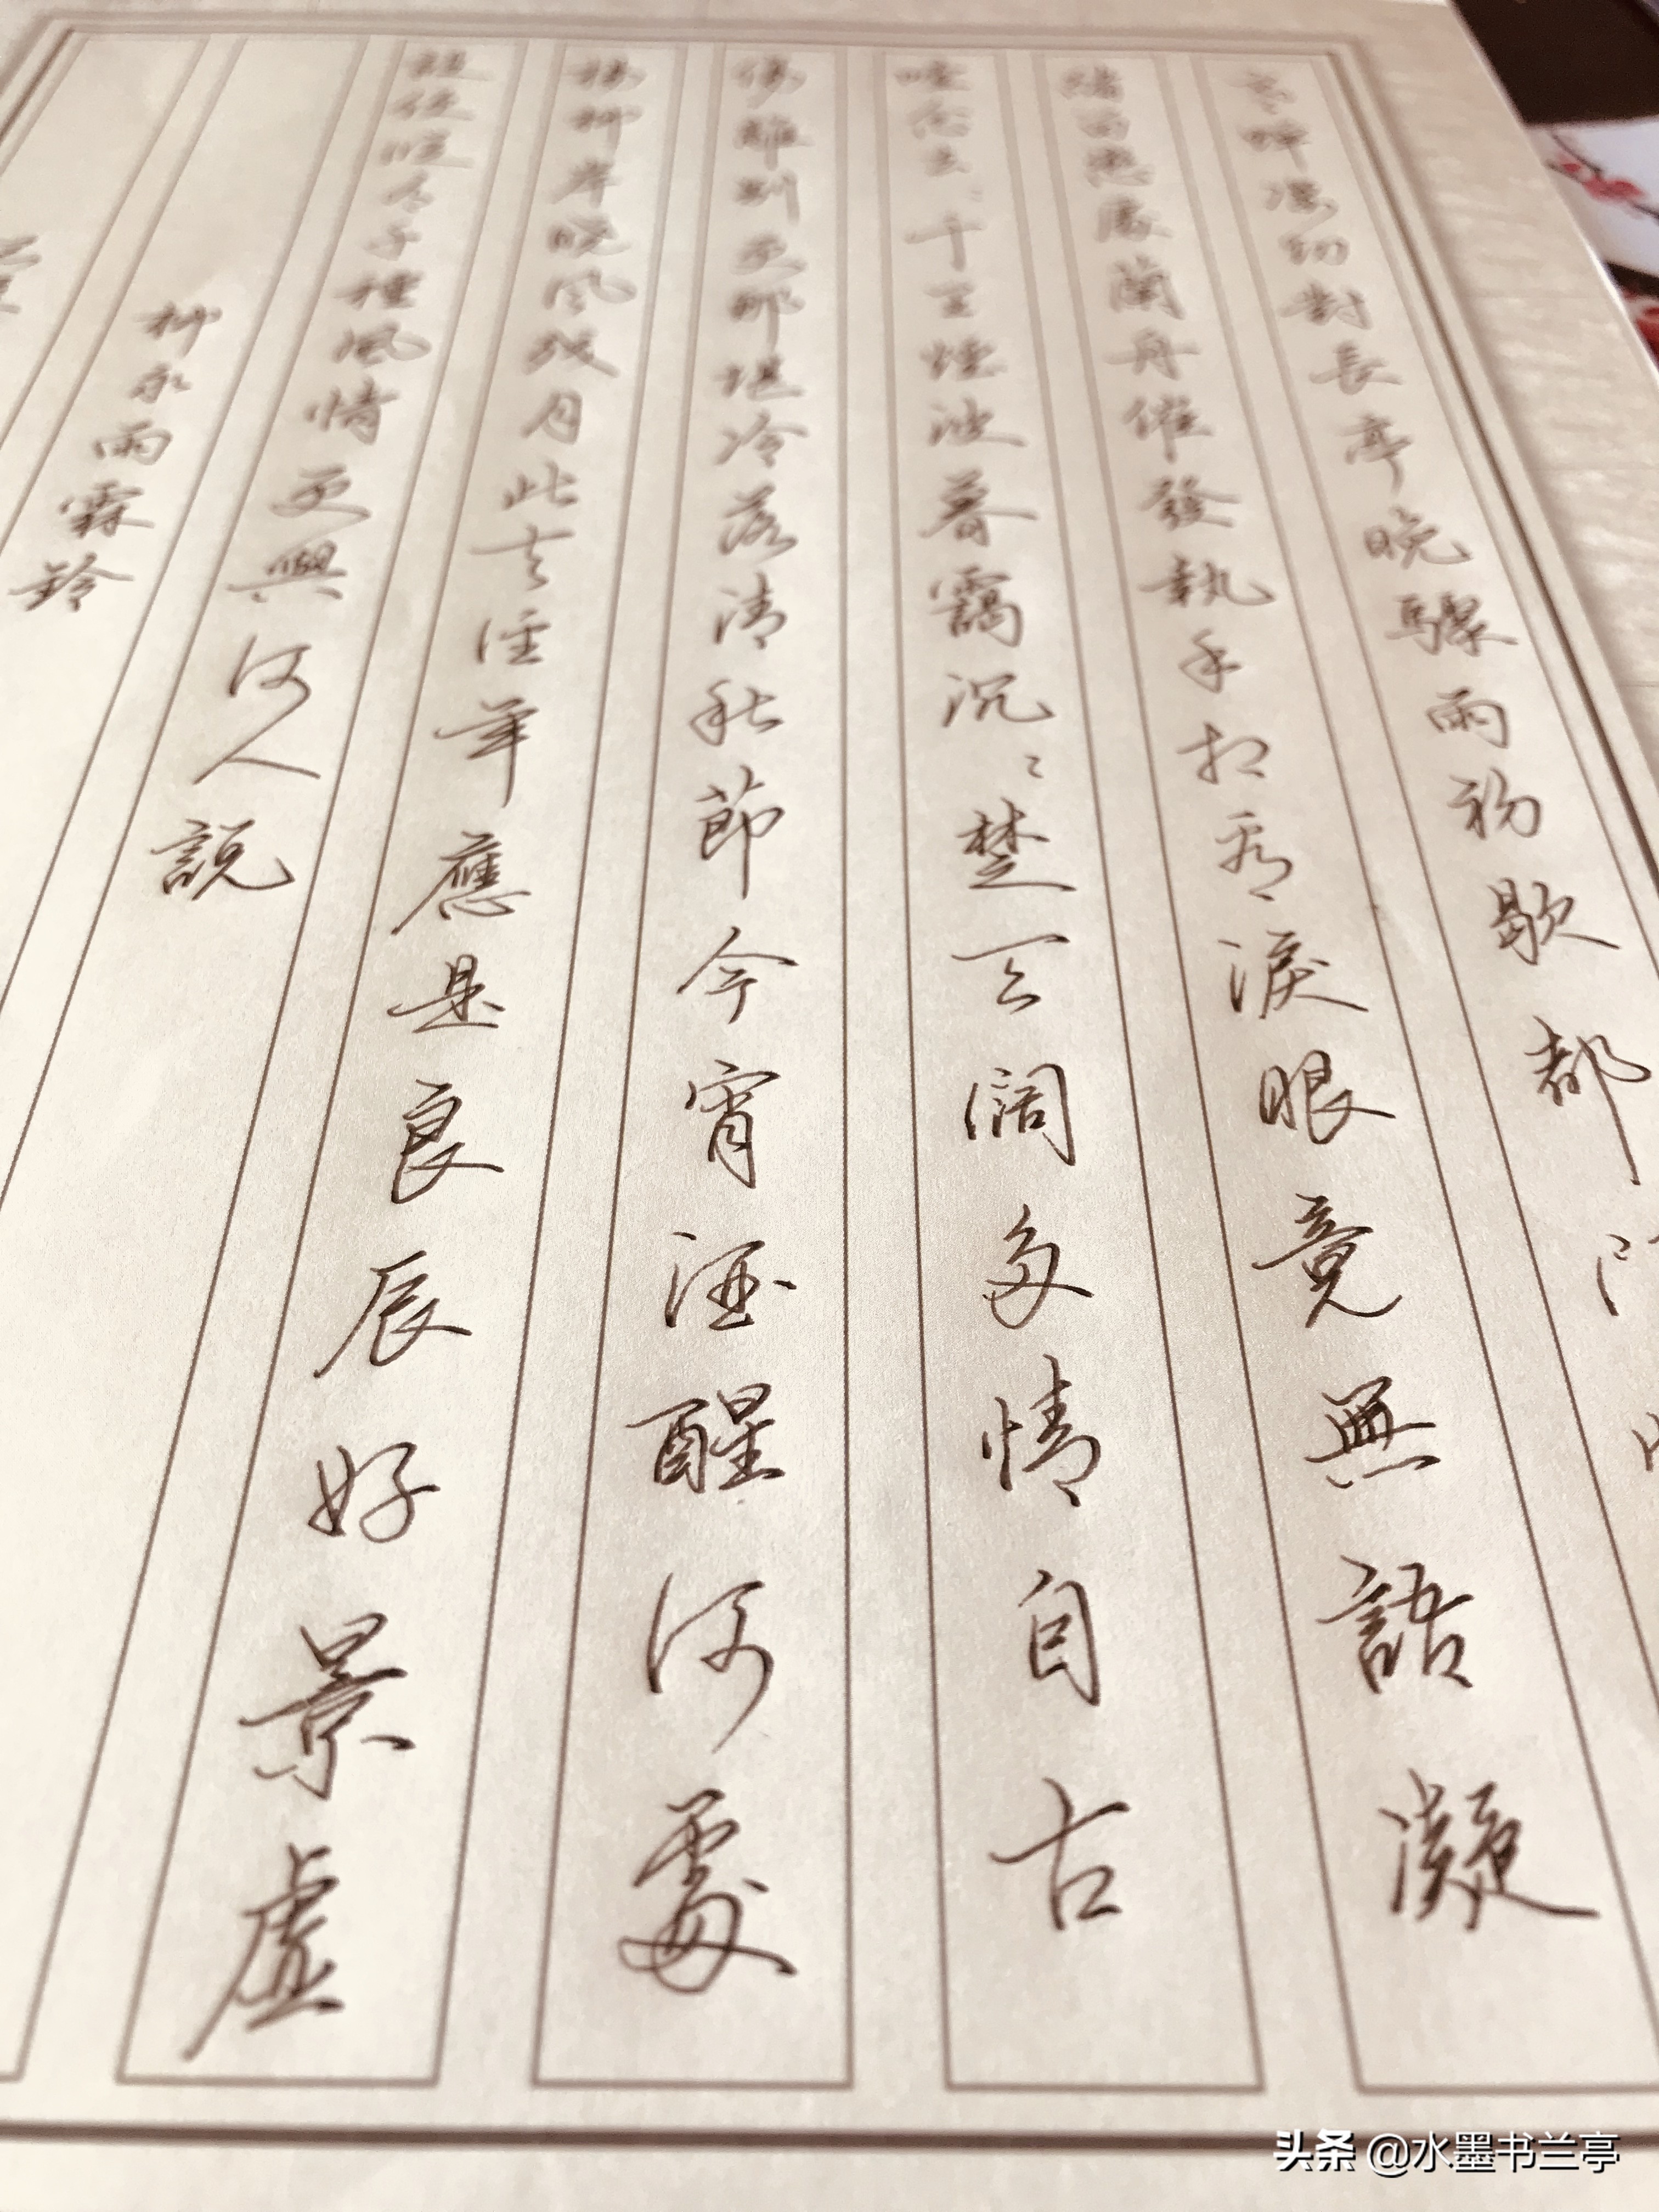 寒蟬淒切對長亭晚驟雨初歇都門
緒留戀處蘭舟催發執手相看淚眼竟無語凝
噎念去〻千里煙波暮靄沉〻楚天闊多情自古
傷離別更那堪冷落清秋節今宵酒醒何處
楊柳岸曉风残月此去經年應是良辰好景虛
設便縱有千種風情更與何人說
柳永雨霖鈴
头条 @水墨书兰亭